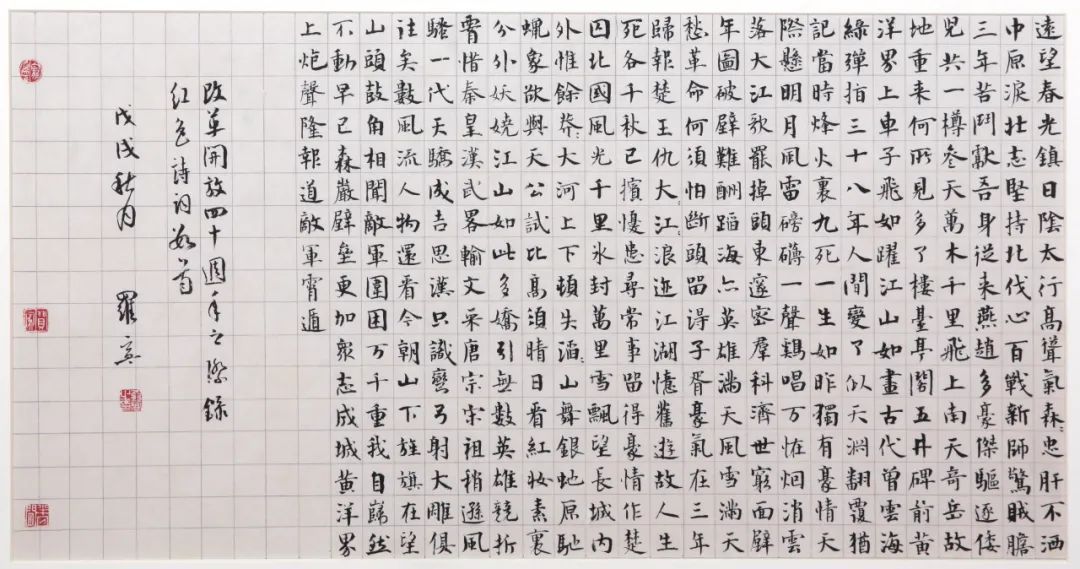 遠望春光鎮日陰太行高聳氣森〻忠肝不洒
中原淚壯志堅持北伐心百戰新師驚賊膽
三年苦鬥獻吾身從来燕趙多豪傑驅逐倭
兒共一樽參天萬木千里飛上南天奇岳故
地重来何所見多了樓臺亭閣五井碑前黄
洋界上車子飛如躍江山如畫古代曾雲海
緑彈指三十八年人間變了似天淵翻覆猶
記當時烽火裏九死一生如昨獨有豪情天
際懸明月風雷磅礴一聲鷄唱万怪烟消雲
落大江歌罷掉頭東邃密羣科濟世窮面壁
年圖破壁難酬蹈海亦英雄滿天風雪滿天
愁革命何須怕斷頭留得子胥豪氣在三年
歸報楚王仇大江〻浪迹江湖憶舊遊故人生
死各千秋已擯憂患尋常事留得豪情作楚
囚北國風光千里氷封萬里雪飄望長城内
外惟餘莽〻大河上下頓失滔〻山舞銀蛇原馳
蠟象欲與天公試比高須晴日看紅妝素裏
分外妖嬈江山如此多嬌引無數英雄競折
霄惜秦皇漢武畧輸文采唐宗宋祖稍遜風
騷一代天驕成吉思漢只識彎弓射大雕俱
往矣數風流人物還看今朝山下旌旗在望
山頭鼓角相聞敵軍圍困万千重我自巋然
不動早已森嚴壁壘更加衆志成城黄洋界
上炮聲隆報道敵軍霄遁
改革開放四十週年之際録
红色詩词数首
戊戌秋月 羅